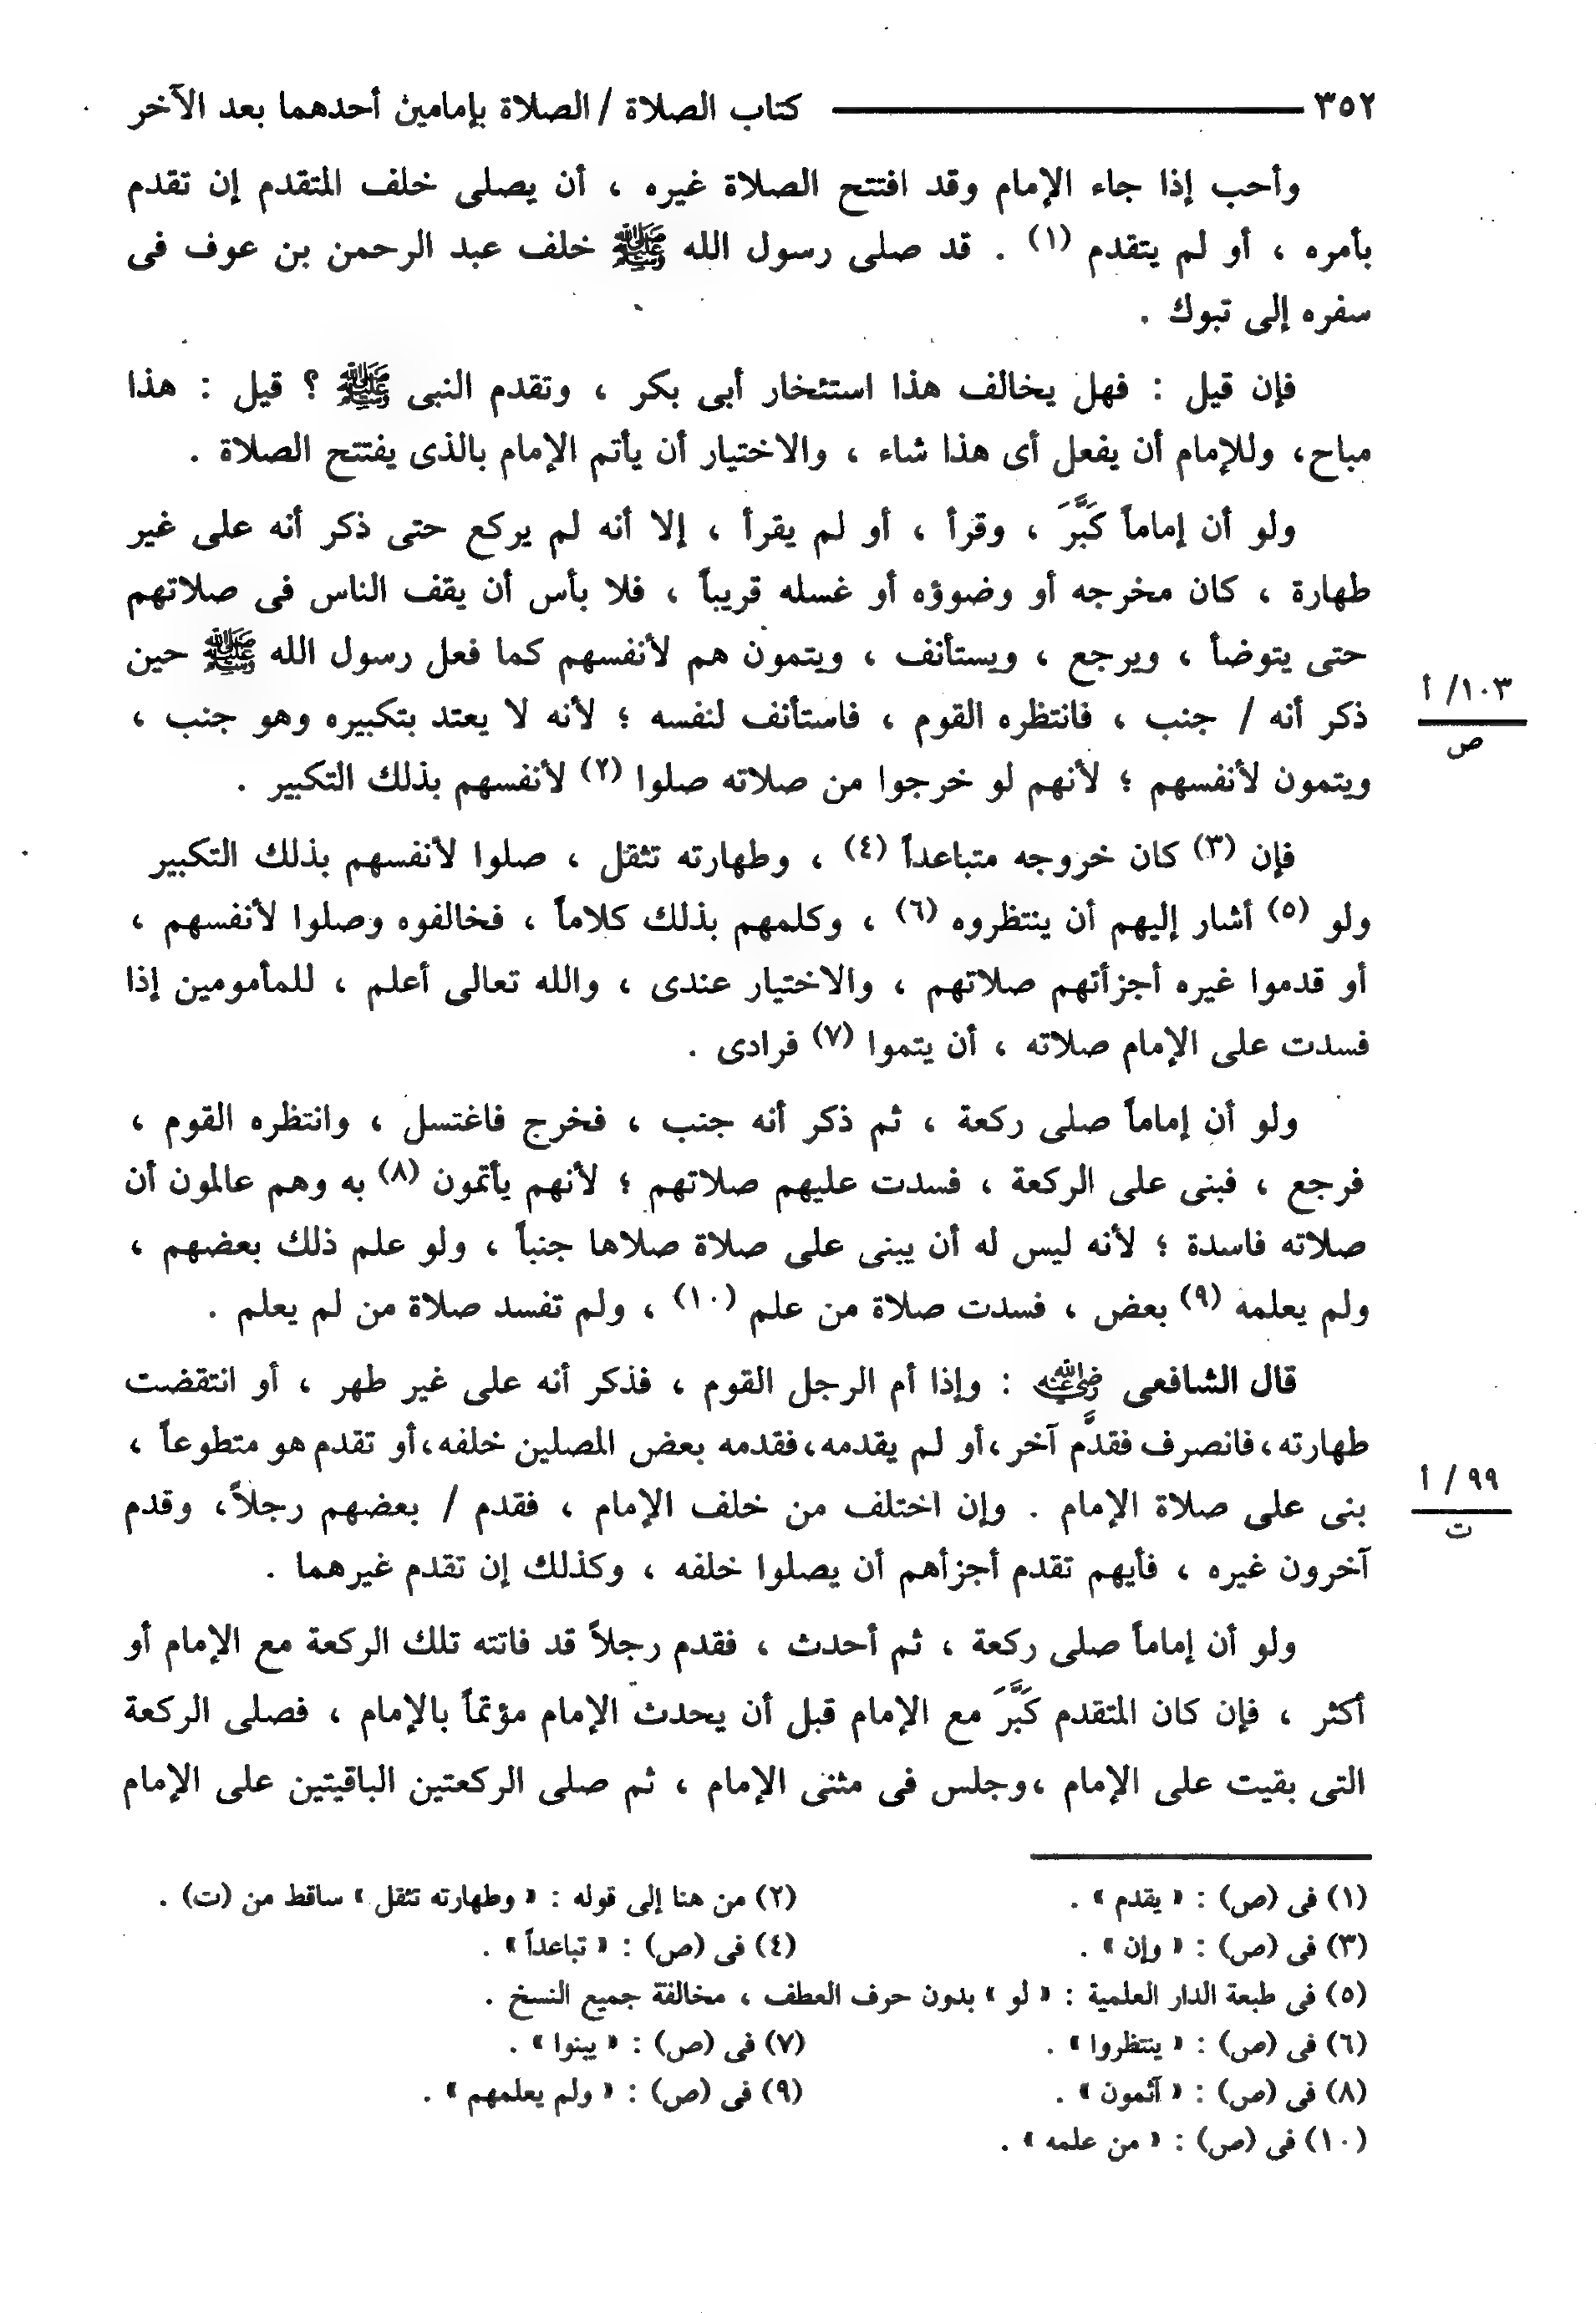 ٣٥٢ كتاب الصلاة / الصلاة بإمامين أحدهما بعد الآخر
وأحب إذا جاء الإمام وقد افتتح الصلاة غيره ، أن يصلى خلف المتقدم إن تقدم
بأمره ، أو لم يتقدم (١) . قد صلى رسول الله ﷺ خلف عبد الرحمن بن عوف فى
سفره إلى تبوك .
فإن قيل : فهل يخالف هذا استئخار أبى بكر ، وتقدم النبى ﷺ ؟ قيل : هذا
مباح، وللإمام أن يفعل أى هذا شاء ، والاختيار أن يأتم الإمام بالذى يفتتح الصلاة .
ولو أن إماماً كَبَّرَ ، وقرأ ، أو لم يقرأ ، إلا أنه لم يركع حتى ذكر أنه على غير
طهارة ، كان مخرجه أو وضوؤه أو غسله قريباً ، فلا بأس أن يقف الناس فى صلاتهم
حتى يتوضأ ، ويرجع ، ويستأنف ، ويتمون هم لأنفسهم كما فعل رسول الله ﷺ حين
ذكر أنه / جنب ، فانتظره القوم ، فاستأنف لنفسه ؛ لأنه لا يعتد بتكبيره وهو جنب ،
١٠٣/ أ
ص
ويتمون لأنفسهم ؛ لأنهم لو خرجوا من صلاته صلوا (٢) لأنفسهم بذلك التكبير .
فإن (٣) كان خروجه متباعداً (٤) ، وطهارته تثقل ، صلوا لأنفسهم بذلك التكبير
ولو (٥) أشار إليهم أن ينتظروه (٦) ، وكلمهم بذلك كلاماً ، فخالفوه وصلوا لأنفسهم ،
أو قدموا غيره أجزأتهم صلاتهم ، والاختيار عندى ، والله تعالى أعلم ، للمأمومين إذا
فسدت على الإمام صلاته ، أن يتموا (٧) فرادى .
ولو أن إماماً صلى ركعة ، ثم ذكر أنه جنب ، فخرج فاغتسل ، وانتظره القوم ،
فرجع ، فبنى على الركعة ، فسدت عليهم صلاتهم ؛ لأنهم يأتمون (٨) به وهم عالمون أن
صلاته فاسدة ؛ لأنه ليس له أن يبنى على صلاة صلاها جنباً ، ولو علم ذلك بعضهم ،
ولم يعلمه (٩) بعض ، فسدت صلاة من علم (١٠) ، ولم تفسد صلاة من لم يعلم .
قال الشافعى رضي الله عنه : وإذا أم الرجل القوم ، فذكر أنه على غير طهر ، أو انتقضت
طهارته،فانصرف فقدَّم آخر،أو لم يقدمه،فقدمه بعض المصلين خلفه،أو تقدم هو متطوعاً ،
بنى على صلاة الإمام . وإن اختلف من خلف الإمام ، فقدم / بعضهم رجلاً، وقدم
٩٩ / أ
ت
آخرون غيره ، فأيهم تقدم أجزأهم أن يصلوا خلفه ، وكذلك إن تقدم غيرهما .
ولو أن إماماً صلى ركعة ، ثم أحدث ، فقدم رجلاً قد فاتته تلك الركعة مع الإمام أو
أكثر ، فإن كان المتقدم كَبَّرَ مع الإمام قبل أن يحدث الإمام مؤتماً بالإمام ، فصلى الركعة
التى بقيت على الإمام ،وجلس فى مثنى الإمام ، ثم صلى الركعتين الباقيتين على الإمام
(١) فى (ص) : « يقدم » . (٢) من هنا إلى قوله : « وطهارته تثقل » ساقط من (ت) .
(٣) فى (ص) : « وإن » . (٤) فى (ص) : « تباعداً » .
(٥) فى طبعة الدار العلمية : « لو » بدون حرف العطف ، مخالفة جميع النسخ .
(٦) فى (ص) : « ينتظروا » . (٧) فى (ص) : « يبنوا » .
(٨) فى (ص) : « آثمون » . (٩) فى (ص) : « ولم يعلمهم » .
(١٠) فى (ص) : « من علمه » .